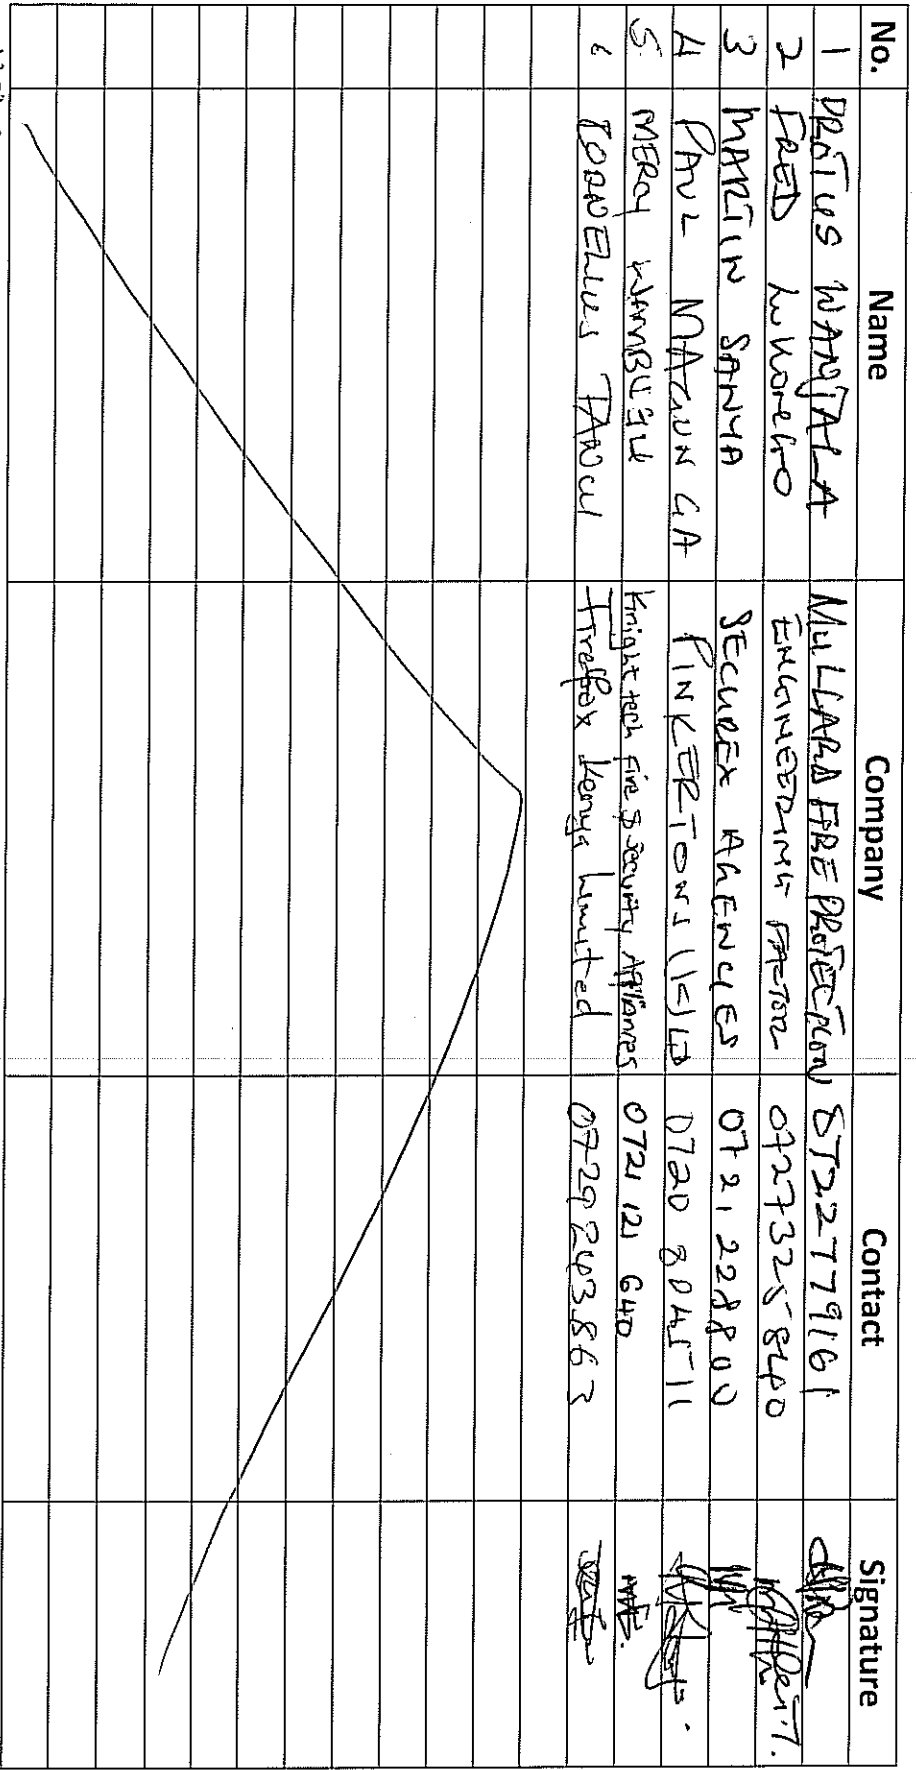 No. Name Company Contact Signature
1 PROTUS WANJALA MULLARD FIRE PROTECTION 0722779161
2 FRED ENGINEERING FACTOR 0727325840
3 MARTIN SANYA SECUREX AGENCIES 0721228800
4 PAUL MAGUNGA PINKERTONS (K) LD 0720 804511
5 MERCY WAMBUGU Knight tech Fire & Security Appliances 0721 121 640
6 Firefox Kenya Limited 0729243863